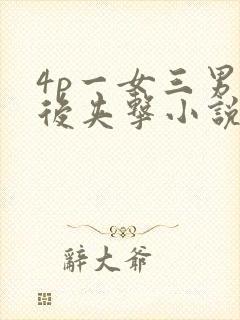 4p一女三男
後失擊小說
辭大爺